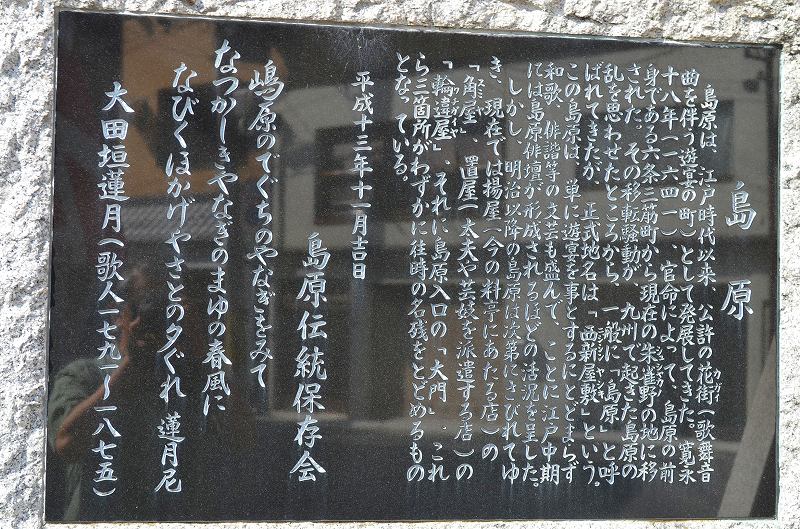 島原
島原は、江戸時代以来、公許の花街(歌舞音
カガイ
曲を伴う遊宴の町)として発展してきた。寛永
十八年(一六四一)、官命によって、島原の前
身である六条三筋町から現在の朱雀野の地に移
された。その移転騒動が、九州で起きた島原の
乱を思わせたところから、一般に「島原」と呼
ばれてきたが、正式地名は「西新屋敷」という。
この島原は、単に遊宴を事とするにとどまらず
和歌、俳諧等の文芸も盛んで、ことに江戸中期
には島原俳壇が形成されるほどの活況を呈した。
しかし、明治以降の島原は次第にさびれてゆ
き、現在では揚屋(今の料亭にあたる店)の
「角屋」、置屋(太夫や芸妓を派遣する店)の
「輪違屋」、それに島原入口の「大門」、これ
ら三箇所がわずかに往時の名残をとどめるもの
となっている。
平成十三年十一月吉日
島原伝統保存会
嶋原のでぐちのやなぎをみて
なつかしきやなぎのまゆの春風に
なびくほかげやさとの夕ぐれ 蓮月尼
大田垣蓮月(歌人一七九一〜一八七五)